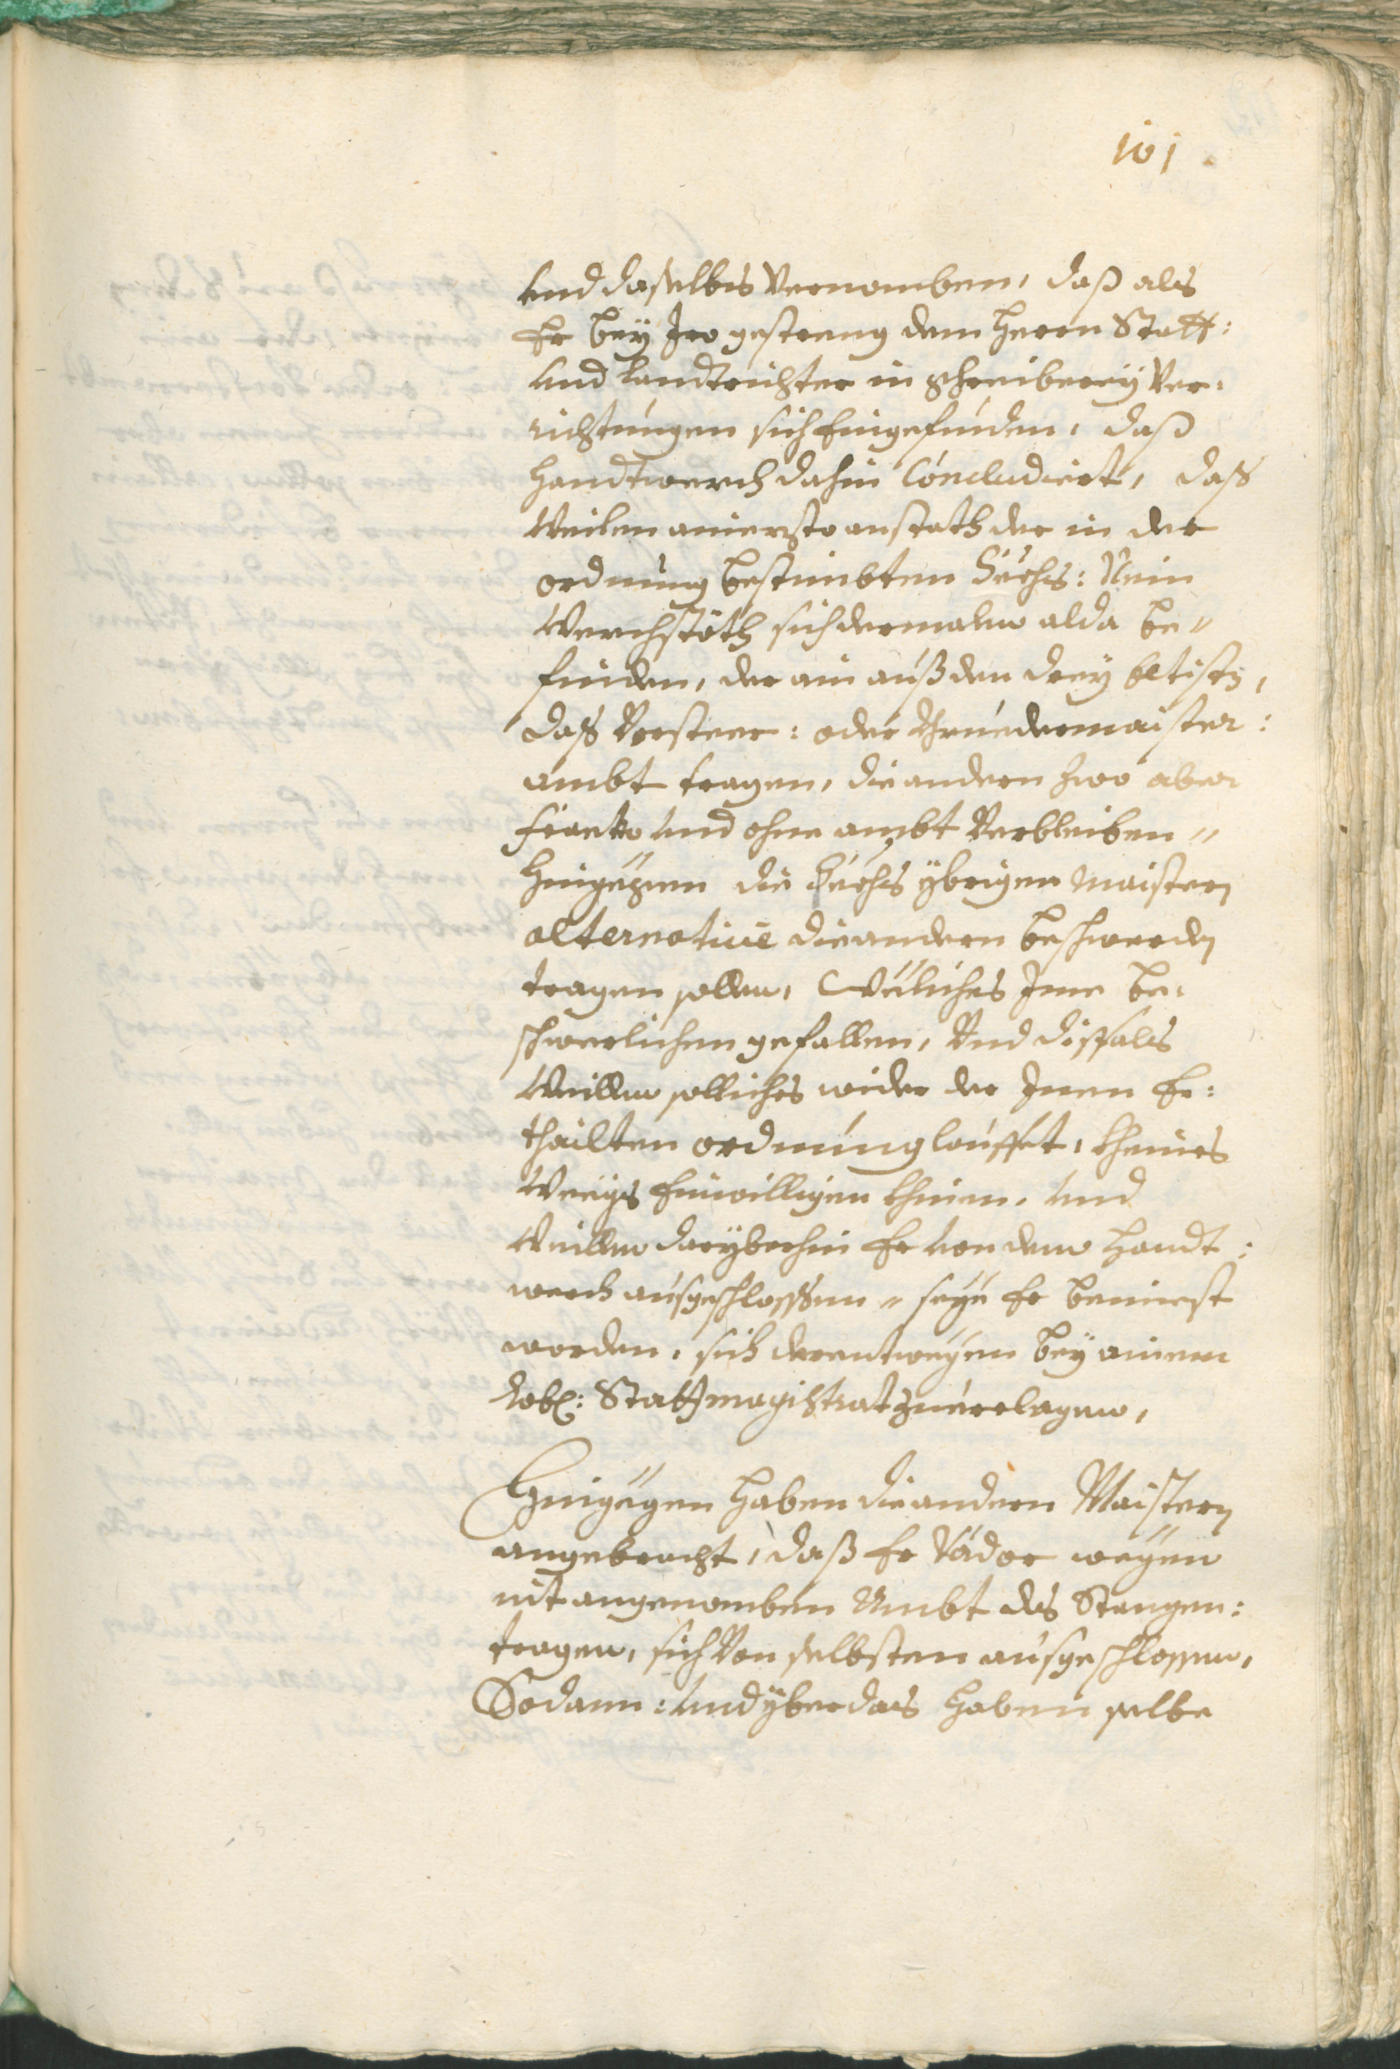 101
und daselbs vernomben, daß als
Er bey Iro gestreng dem herrn Statt:
und Landtrichter in schreiberey Ver:
richtungen sich Eingefunden, daß
handtwerch dahin Concludiert, daß
Weilen anierzto anstath der in der
ordnung bestimbten Sechs: Nein
Werchstöth sich dermalen alda be„
finden, der ain auß den drey
daß Vorsteer: oder Bruedermaister:
ambt tragen, die andern zwo aber
und ohne ambt Verbleiben„
hingegen die Sechs ybrigen Maistern
alternative die andern beschwerden
tragen sollen, Weliches Ime be„
schwerlichen gefallen, Und dißfals
Weillen solliches wider der Inen Er:
thailten ordnung lauffet, kheines
Weegs Einwilligen khinen, Und
Weillen daryberhin Er von dem handt:
werch ausgeschlossen„ seye Er benierst
worden, sich derentwegen bey ainem
Lobl: Stattmagistrat zuerclagen,
Hingegen haben die andern Maistern
angebracht, daß Er Väder wegen
nit angenomben Ambt des Stangen:
tragen, sich von selbsten ausgeschlossen,
Sodann: und yberdas haben selbe